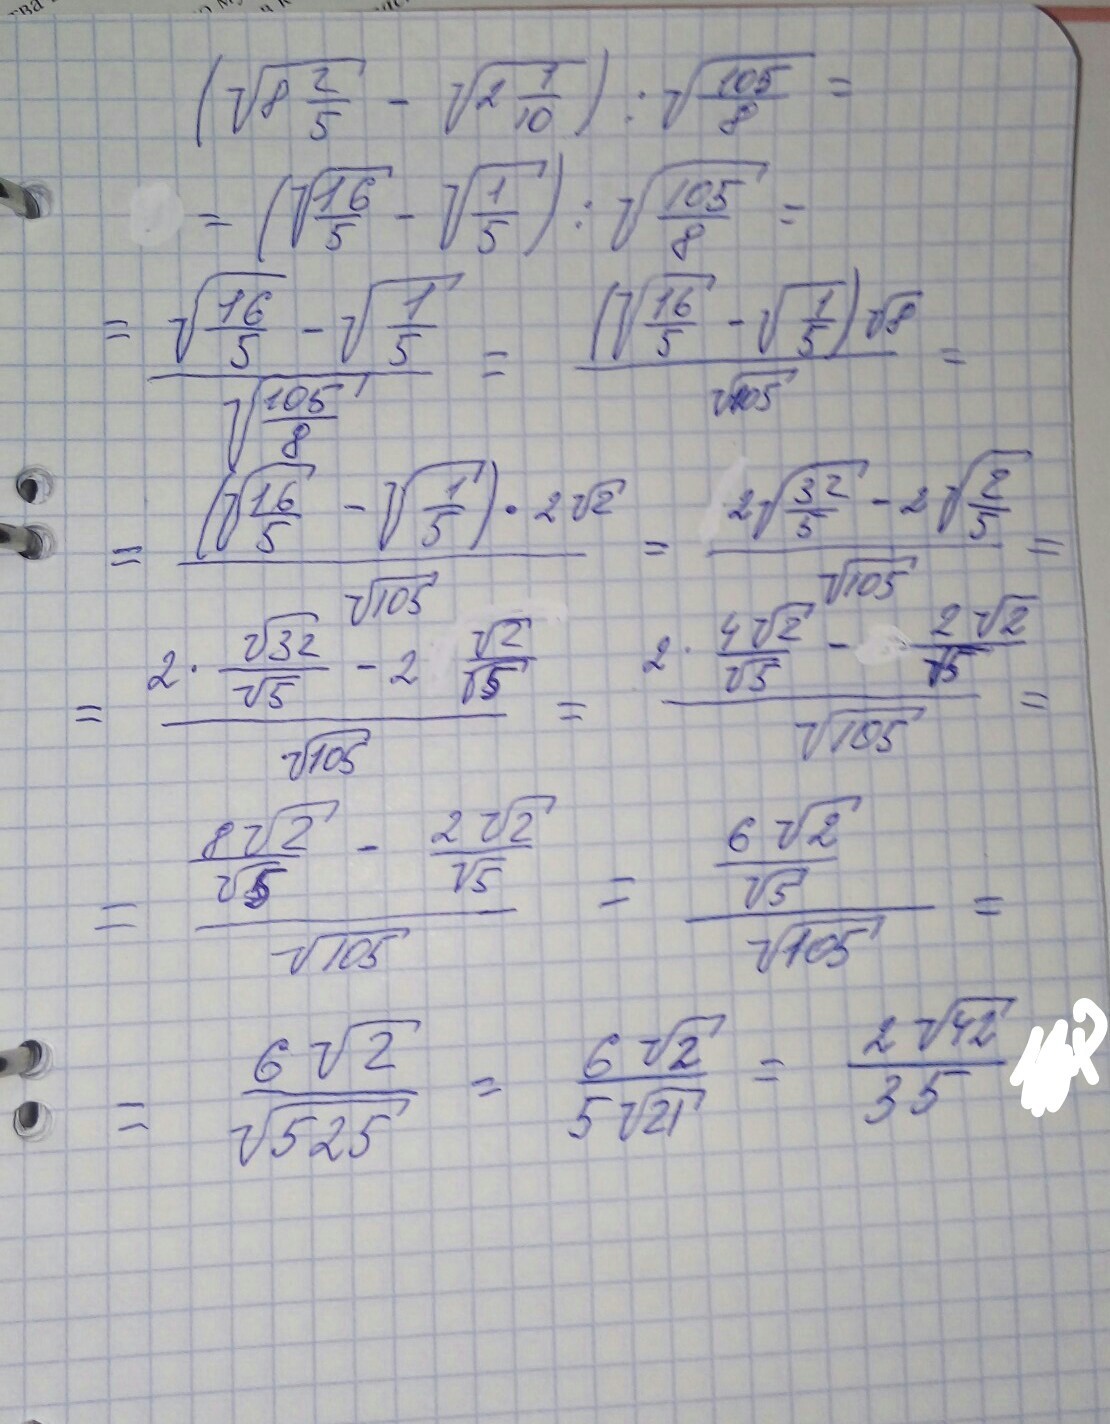 (√8 2/5 - √2 1/10) : √105/8 =
= (√16/5 - √1/5) : √105/8 =
= (√16/5 - √1/5)/(√105/8) = ((√16/5 - √1/5)√8)/√105 =
= ((√16/5 - √1/5) · 2√2)/√105 = (2√32/5 - 2√2/5)/√105 =
= (2 · √32/√5 - 2 √2/√5)/√105 = (2 · 4√2/√5 - 2√2/√5)/√105 =
= (8√2/√5 - 2√2/√5)/√105 = (6√2/√5)/√105 =
= 6√2/√525 = 6√2/5√21 = 2√42/35